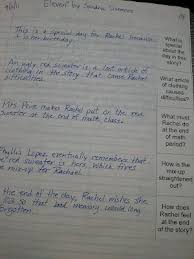 "Eleven" by Sandra Cisneros
This is a special day for Rachel because
is her birthday.
What is special about the day in this story?
An ugly red sweater is a lost article of
clothing in the story that cause Rachel
difficulties.
What article of clothing causes difficulties?
Mrs. Price makes Rachel put on the red
sweater at the end of math class.
What must Rachel do at the end of math period?
Phyllis Lopez eventually remembers that
red sweater is hers. Which fixes
mix-up for Rachel.
How is the mix-up straightened out?
the end of the day, Rachel wishes she
so that bad memory would long
forgotten.
How does Rachel feel at the end of the story?